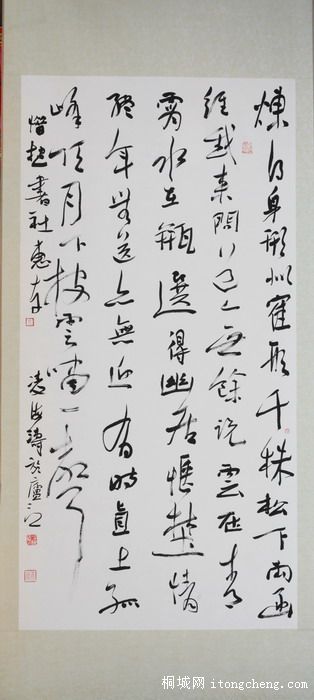 煉得身形似鶴形千株松下兩函
經我來問道無餘說雲在青
霄水在瓶選得幽居愜埜情
終年無送亦無迎有時直上孤
峰頂月下披雲嘯一聲
惜抱書社惠存 凌海濤於廬江
桐城网 itongcheng.com